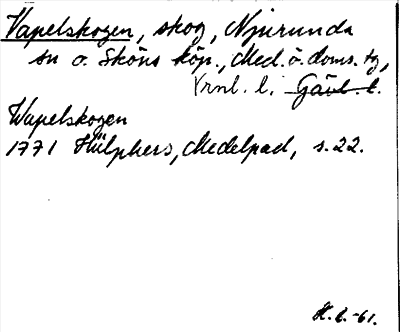 Vapelskogen, skog, Njurunda
sn o. Sköns köp., Med. ö. doms. tg,
Vrnl. l. Gävl. l.
Wapelskogen
1771 Hülphers, Medelpad, s. 22.
H. L. -61.